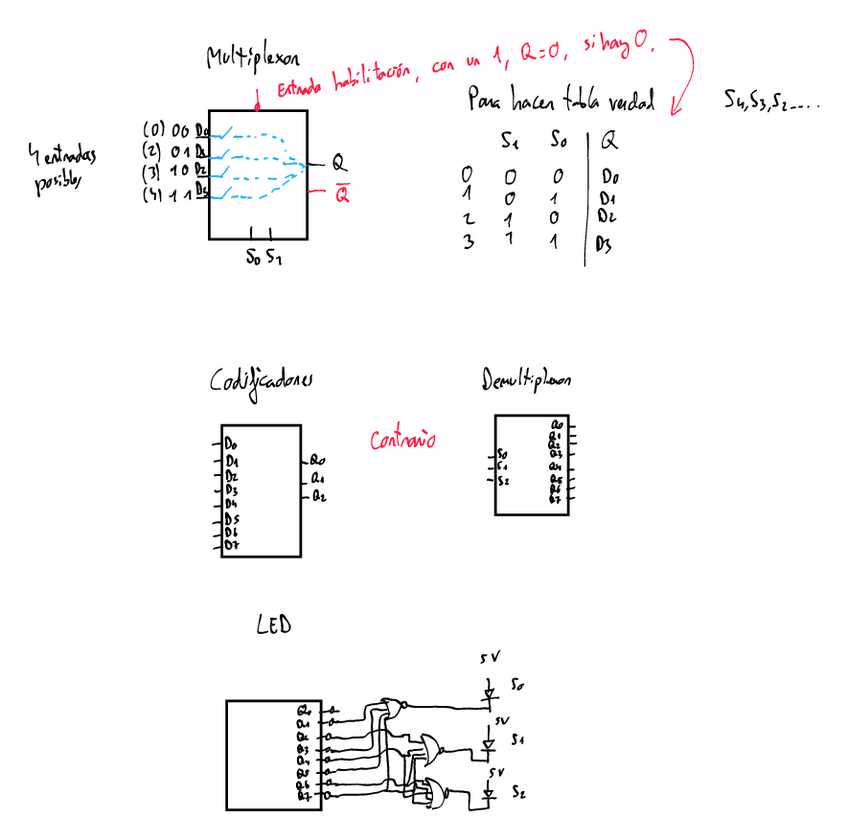 Multiplexor
Entrada habilitación, con un 1, Q=0, si hay 0,
Para hacer tabla verdad
S4,S3,S2....
4 entradas
posibles
(0) 00 D0
(2) 01 D1
(3) 10 D2
(4) 11 D3
Q
Q̅
S0 S1
S1 S0 Q
0 0 0 D0
1 0 1 D1
2 1 0 D2
3 1 1 D3
Codificadores
Contrario
Demultiplexor
D0
D1
D2
D3
D4
D5
D6
D7
Q0
Q1
Q2
S0
S1
S2
Q0
Q1
Q2
Q3
Q4
Q5
Q6
Q7
LED
Q0
Q1
Q2
Q3
Q4
Q5
Q6
Q7
5V
S0
5V
S1
5V
S2